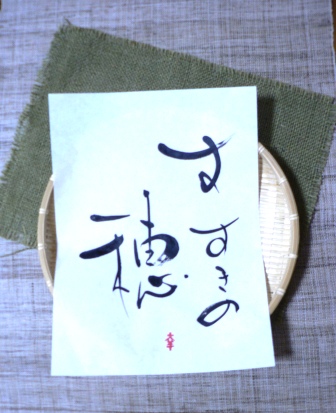 すすきの
穂